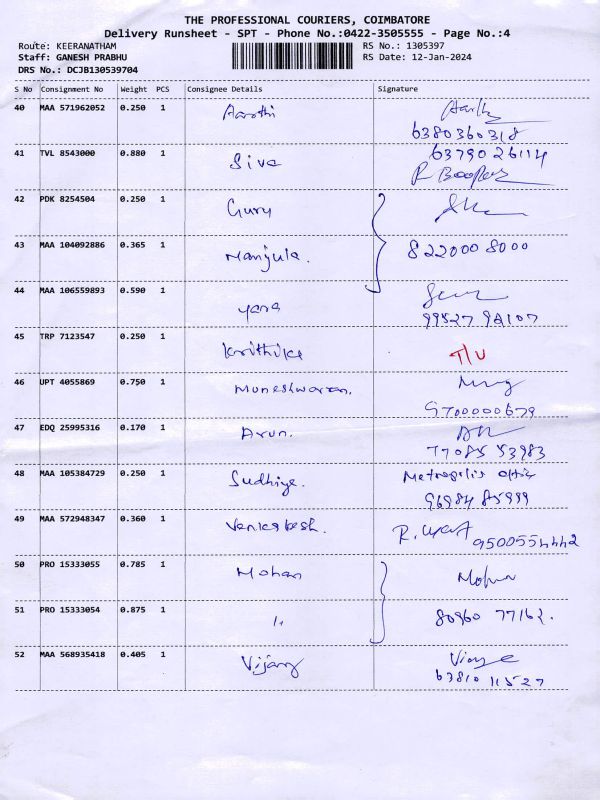 THE PROFESSIONAL COURIERS, COIMBATORE
Delivery Runsheet - SPT - Phone No.:0422-3505555 - Page No.:4
Route: KEERANATHAM RS No.: 1305397
Staff: GANESH PRABHU RS Date: 12-Jan-2024
DRS No.: DCJB130539704
S No Consignment No Weight PCS Consignee Details Signature
40 MAA 571962052 0.250 1 Aarothi
6380360318
41 TVL 8543000 0.880 1 Siva 63790 26114
42 PDK 8254504 0.250 1 Guru
43 MAA 104092886 0.365 1 Manjula. 822000 8000
44 MAA 106559893 0.590 1 yara
45 TRP 7123547 0.250 1 Krithika T/U
46 UPT 4055869 0.750 1 Muneshwaran.
9700000679
47 EDQ 25995316 0.170 1 Arun.
77085 53983
48 MAA 105384729 0.250 1 Sudhiye. Metropolis
96984 85999
49 MAA 572948347 0.360 1 Venkatesh.
9500554442
50 PRO 15333055 0.785 1 Mohan Mohan
51 PRO 15333054 0.875 1 " 80960 77162.
52 MAA 568935418 0.405 1 Vijay
63810 11527